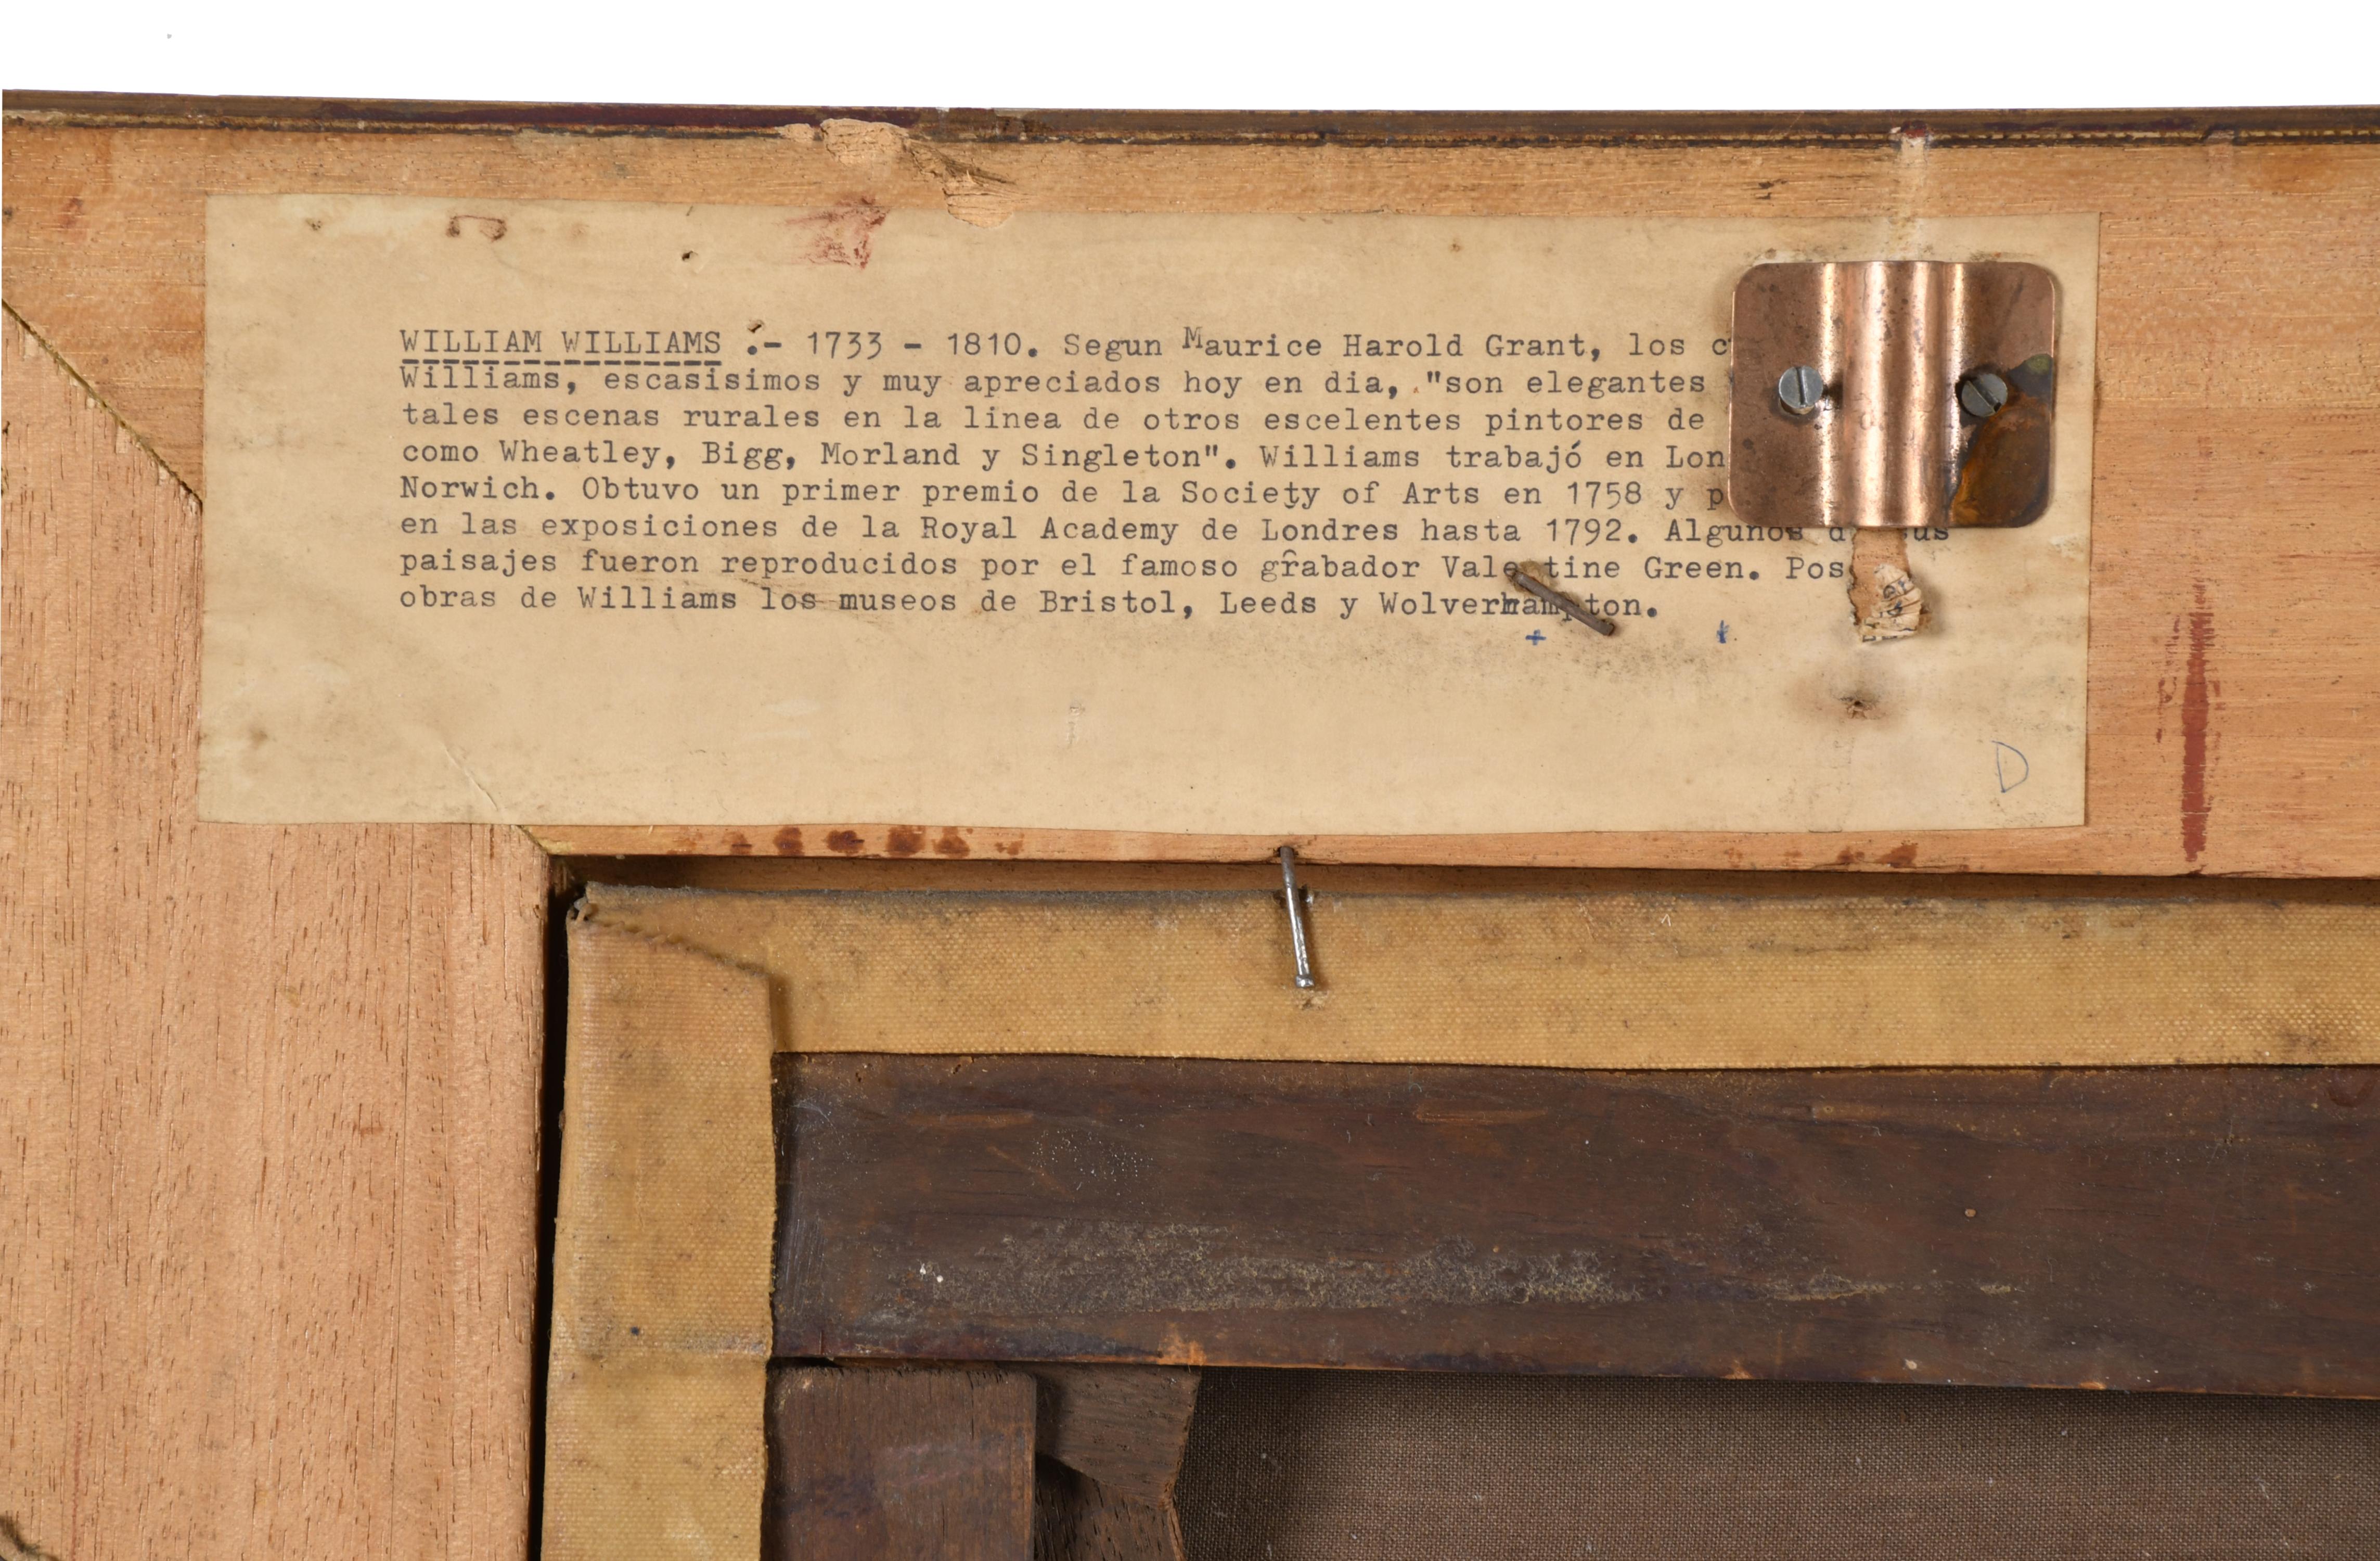 WILLIAM WILLIAMS :- 1733 - 1810. Segun Maurice Harold Grant, los
Williams, escasisimos y muy apreciados hoy en dia, "son elegantes
tales escenas rurales en la linea de otros escelentes pintores de
como Wheatley, Bigg, Morland y Singleton". Williams trabajó en
Norwich. Obtuvo un primer premio de la Society of Arts en 1758 y
en las exposiciones de la Royal Academy de Londres hasta 1792. Algunos
paisajes fueron reproducidos por el famoso grabador Valentine Green.
obras de Williams los museos de Bristol, Leeds y Wolverhampton.
D